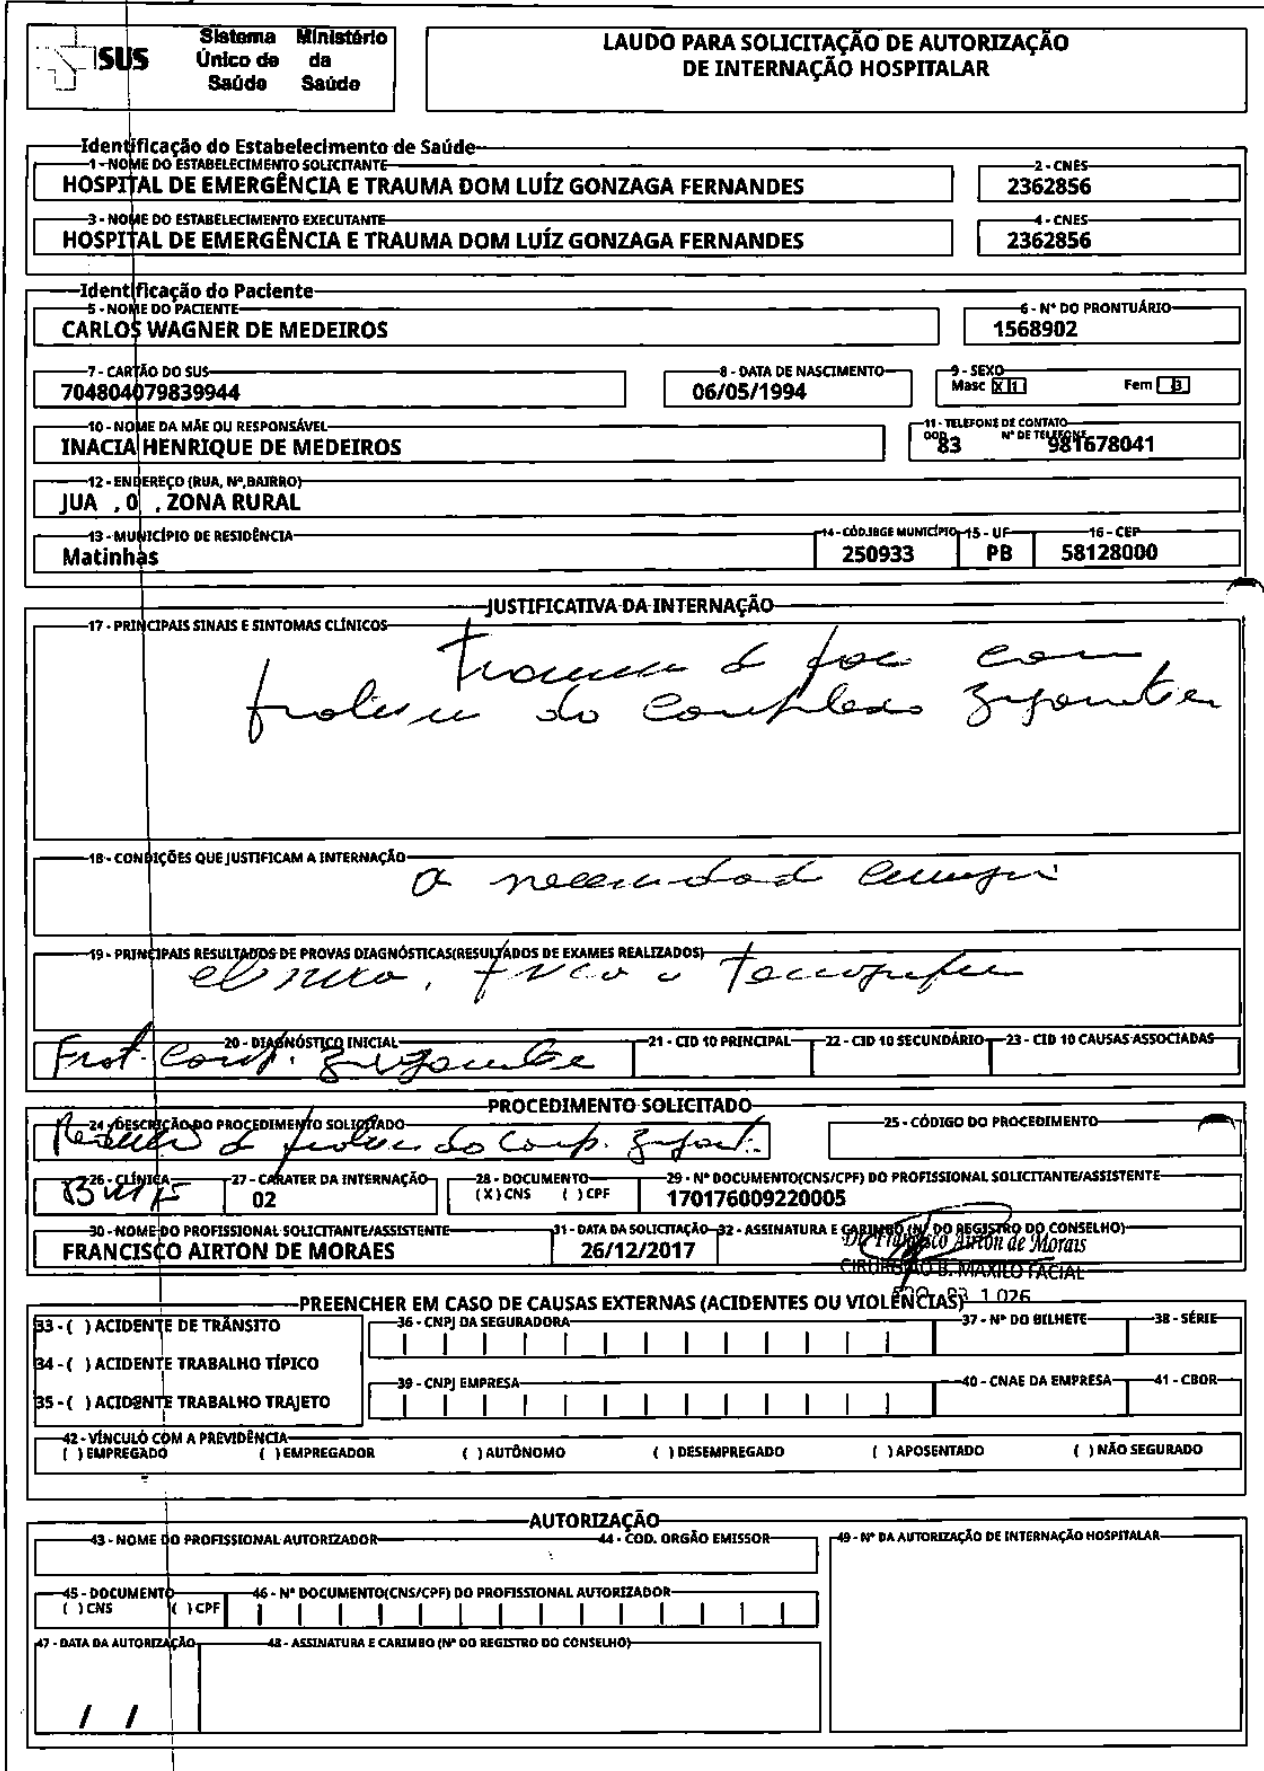 SUS
Sistema Único de Saúde
Ministério da Saúde
LAUDO PARA SOLICITAÇÃO DE AUTORIZAÇÃO
DE INTERNAÇÃO HOSPITALAR
Identificação do Estabelecimento de Saúde
1 - NOME DO ESTABELECIMENTO SOLICITANTE
HOSPITAL DE EMERGÊNCIA E TRAUMA DOM LUÍZ GONZAGA FERNANDES
2 - CNES
2362856
3 - NOME DO ESTABELECIMENTO EXECUTANTE
HOSPITAL DE EMERGÊNCIA E TRAUMA DOM LUÍZ GONZAGA FERNANDES
4 - CNES
2362856
Identificação do Paciente
5 - NOME DO PACIENTE
CARLOS WAGNER DE MEDEIROS
6 - Nº DO PRONTUÁRIO
1568902
7 - CARTÃO DO SUS
704804079839944
8 - DATA DE NASCIMENTO
06/05/1994
9 - SEXO
Masc X 1 Fem 3
10 - NOME DA MÃE OU RESPONSÁVEL
INACIA HENRIQUE DE MEDEIROS
11 - TELEFONE DE CONTATO
DDD Nº DE TELEFONE
83 981678041
12 - ENDEREÇO (RUA, Nº,BAIRRO)
JUA , 0 , ZONA RURAL
13 - MUNICÍPIO DE RESIDÊNCIA
Matinhas
14 - CÓD.IBGE MUNICÍPIO
250933
15 - UF
PB
16 - CEP
58128000
JUSTIFICATIVA DA INTERNAÇÃO
17 - PRINCIPAIS SINAIS E SINTOMAS CLÍNICOS
Trauma de face com
fratura do complexo zigomático
18 - CONDIÇÕES QUE JUSTIFICAM A INTERNAÇÃO
a necessidade
19 - PRINCIPAIS RESULTADOS DE PROVAS DIAGNÓSTICAS(RESULTADOS DE EXAMES REALIZADOS)
clínico, físico e tomografia
20 - DIAGNÓSTICO INICIAL
Frat. Comp. zigomático
21 - CID 10 PRINCIPAL
22 - CID 10 SECUNDÁRIO
23 - CID 10 CAUSAS ASSOCIADAS
PROCEDIMENTO SOLICITADO
24 - DESCRIÇÃO DO PROCEDIMENTO SOLICITADO
de fratura do Comp. zigomat.
25 - CÓDIGO DO PROCEDIMENTO
26 - CLÍNICA
27 - CARATER DA INTERNAÇÃO
02
28 - DOCUMENTO
(X) CNS ( ) CPF
29 - Nº DOCUMENTO(CNS/CPF) DO PROFISSIONAL SOLICITANTE/ASSISTENTE
170176009220005
30 - NOME DO PROFISSIONAL SOLICITANTE/ASSISTENTE
FRANCISCO AIRTON DE MORAES
31 - DATA DA SOLICITAÇÃO
26/12/2017
32 - ASSINATURA E CARIMBO (Nº DO REGISTRO DO CONSELHO)
Dr. Francisco Airton de Morais
CIRURGIÃO B. MAXILO FACIAL
1.026
PREENCHER EM CASO DE CAUSAS EXTERNAS (ACIDENTES OU VIOLÊNCIAS)
33 - ( ) ACIDENTE DE TRÂNSITO
34 - ( ) ACIDENTE TRABALHO TÍPICO
35 - ( ) ACIDENTE TRABALHO TRAJETO
36 - CNPJ DA SEGURADORA
37 - Nº DO BILHETE
38 - SÉRIE
39 - CNPJ EMPRESA
40 - CNAE DA EMPRESA
41 - CBOR
42 - VÍNCULO COM A PREVIDÊNCIA
( ) EMPREGADO ( ) EMPREGADOR ( ) AUTÔNOMO ( ) DESEMPREGADO ( ) APOSENTADO ( ) NÃO SEGURADO
AUTORIZAÇÃO
43 - NOME DO PROFISSIONAL AUTORIZADOR
44 - COD. ORGÃO EMISSOR
49 - Nº DA AUTORIZAÇÃO DE INTERNAÇÃO HOSPITALAR
45 - DOCUMENTO
( ) CNS ( ) CPF
46 - Nº DOCUMENTO(CNS/CPF) DO PROFISSIONAL AUTORIZADOR
47 - DATA DA AUTORIZAÇÃO
/ /
48 - ASSINATURA E CARIMBO (Nº DO REGISTRO DO CONSELHO)